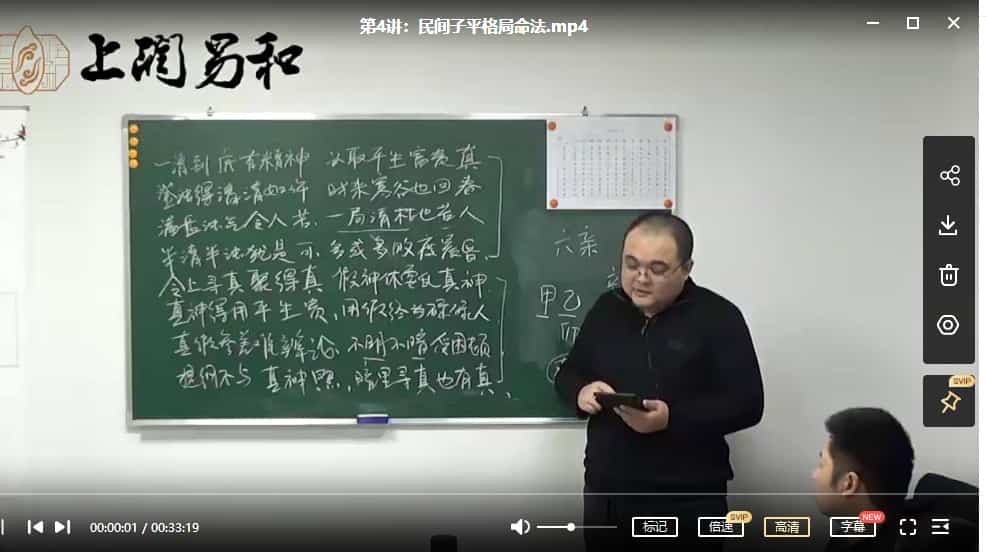 第4讲:民间子平格局命法.mp4
上润易和
一清到底有精神 取平生富贵真
时来寒谷也回春
满盘浊气令人苦. 一局清枯也苦人
半清半浊犹是可. 多成多败度晨昏.
令上寻真聚得真 假神休要乱真神
真神得用平生贵, 用假终为碌碌人
真假参差难辨论. 不明不暗受困顿
提纲不与真神照. 暗里寻真也有真.
六亲
甲乙
00:00:01 / 00:33:19
标记
倍速
SVIP
高清
字幕
NEW
SVIP